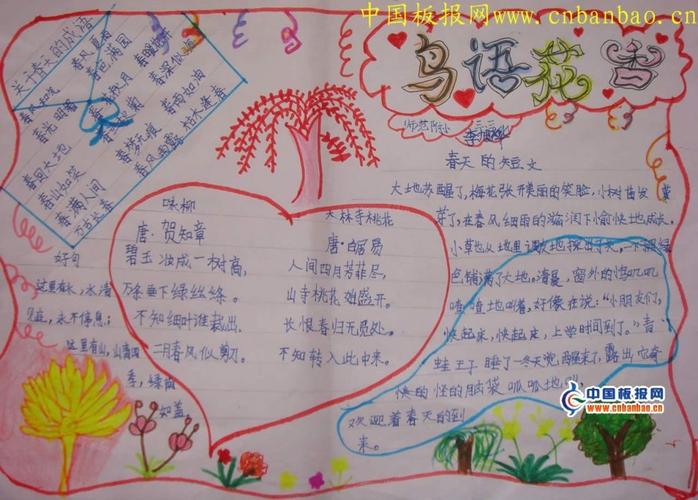 中国板报网www.cnbanbao.cn
鸟语花香
师范附小
关于春天的成语
春风化雨
春色满园
春深似海
春雨如油
枯木逢春
春回大地
春山如笑
春满人间
万古长春
好句
这里有水，水清
见底，永不停息；
这里有山，山青四
季，绿树
如盖。
咏柳
唐·贺知章
碧玉妆成一树高，
万条垂下绿丝绦。
不知细叶谁裁出，
二月春风似剪刀。
大林寺桃花
唐·白居易
人间四月芳菲尽，
山寺桃花始盛开。
长恨春归无觅处，
不知转入此中来。
春天的短文
大地苏醒了，梅花张开美丽的笑脸，小树苗发
芽了，在春风细雨的滋润下愉快地成长。
小草也从地里调皮地探出了头，一下把绿
色铺满了大地。清晨，窗外的鸟叽叽
喳喳地叫着，好像在说：“小朋友们，
快起床，快起床，上学时间到了。”青
蛙王子睡了一冬天觉，也醒来了，露出它奇
怪的脑袋呱呱地叫，
欢迎着春天的到
来。
中国板报网
www.cnbanbao.cn